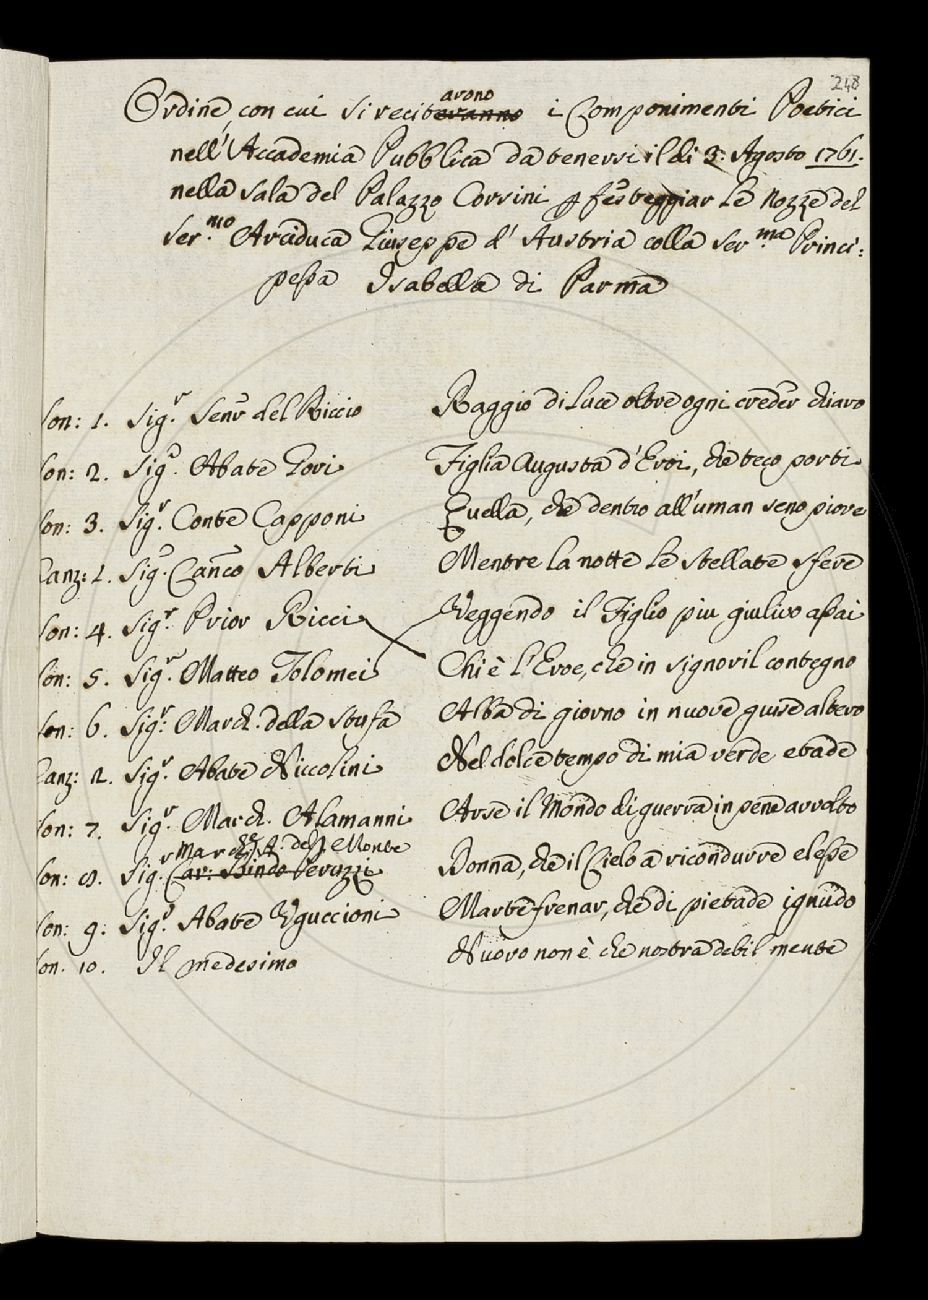 248
Ordine con cui si recitarono i Componimenti Poetici
nell'Accademia Pubblica da tenersi il di 3: Agosto 1761.
nella sala del Palazzo Corsini p festeggiar le Nozze del
Ser.mo Arciduca Giuseppe d'Austria colla Ser.ma Princi:
pessa Isabella di Parma
Son: 1. Sig.r Senr del Riccio Raggio di luce oltre ogni creder chiaro
Son: 2. Sig.r Abate Gori Figlia Augusta d'Eroi, che teco porti
Son: 3. Sig.r Conte Capponi Quella, che dentro all'uman seno piove
Canz: 1. Sig.r Canco Alberti Mentre la notte le stellate sfere
Son: 4. Sig.r Prior Ricci Veggendo il Figlio piu giulivo assai
Son: 5. Sig.r Matteo Tolomei Chi è l'Eroe, che in signoril contegno
Son: 6. Sig.r March. della Stufa Alba di giorno in nuove guise albero
Canz: 2. Sig.r Abate Niccolini Nel dolce tempo di mia verde etade
Son: 7. Sig.r March. Alamanni Arse il Mondo di guerra in pene avvolto
r March. del Monte
Son: 8. Sig. Cav: Bindo Peruzzi Donna, che il Cielo a ricondurre elesse
Son: 9: Sig.r Abate Uguccioni Marte frenar, che di pietade ignudo
Son. 10. Il medesimo Nuovo non è che nostra debil mente